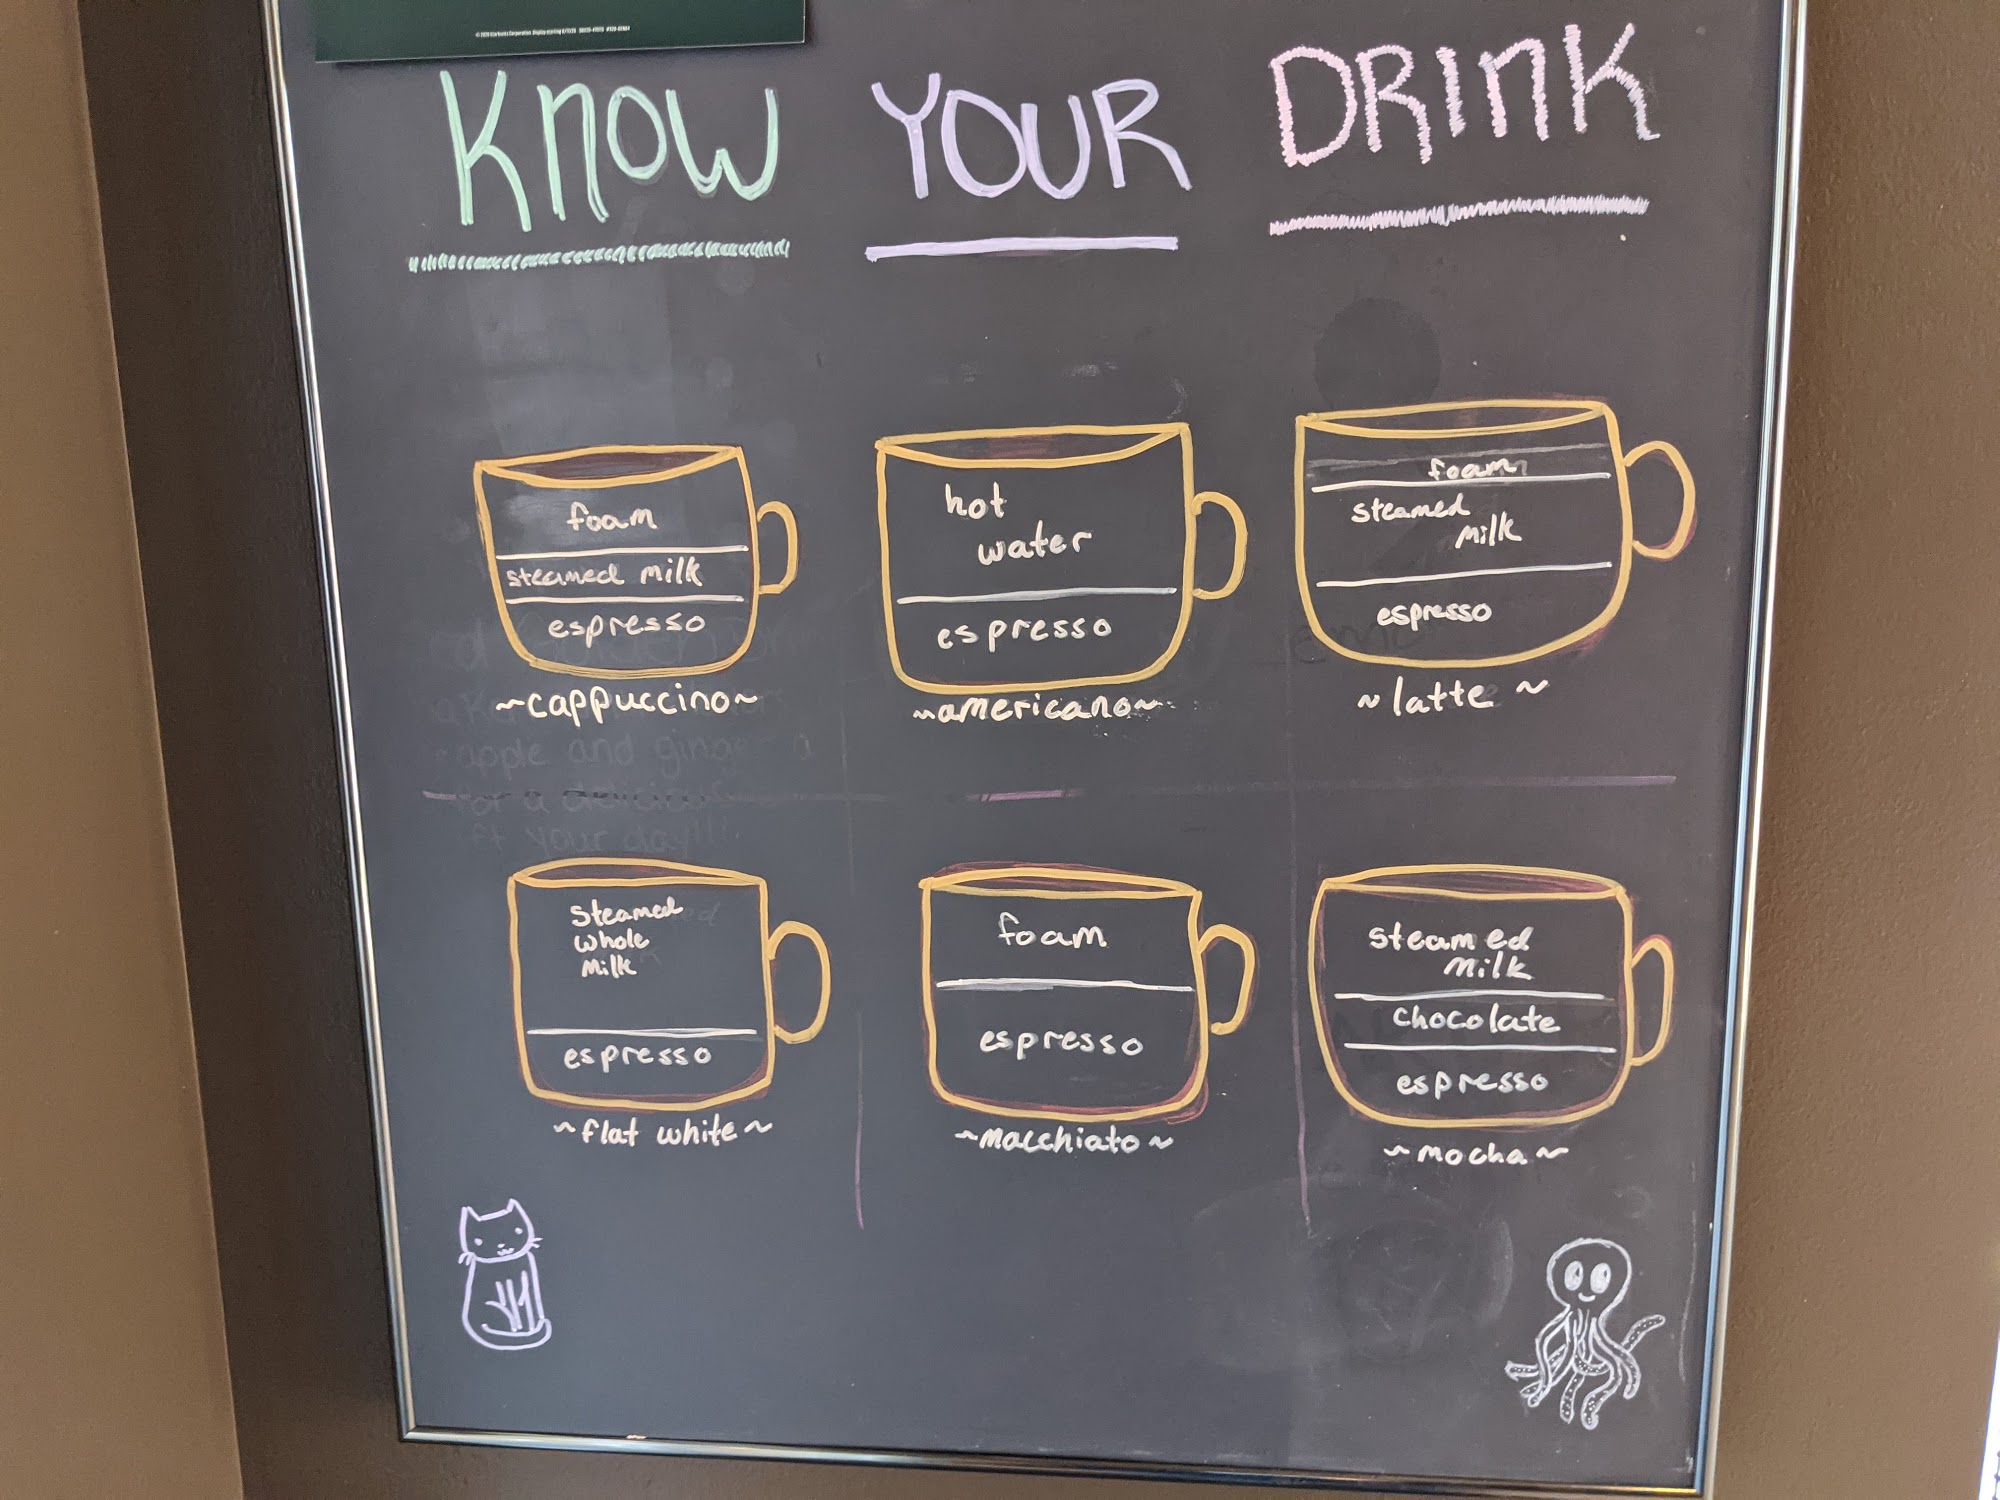 KNOW YOUR DRINK
foam
steamed milk
espresso
~cappuccino~
hot
water
espresso
~americano~
foam
steamed
milk
espresso
~latte~
steamed
whole
milk
espresso
~flat white~
foam
espresso
~macchiato~
steamed
milk
chocolate
espresso
~mocha~
apple and ginger
for a delicious
your day!!!